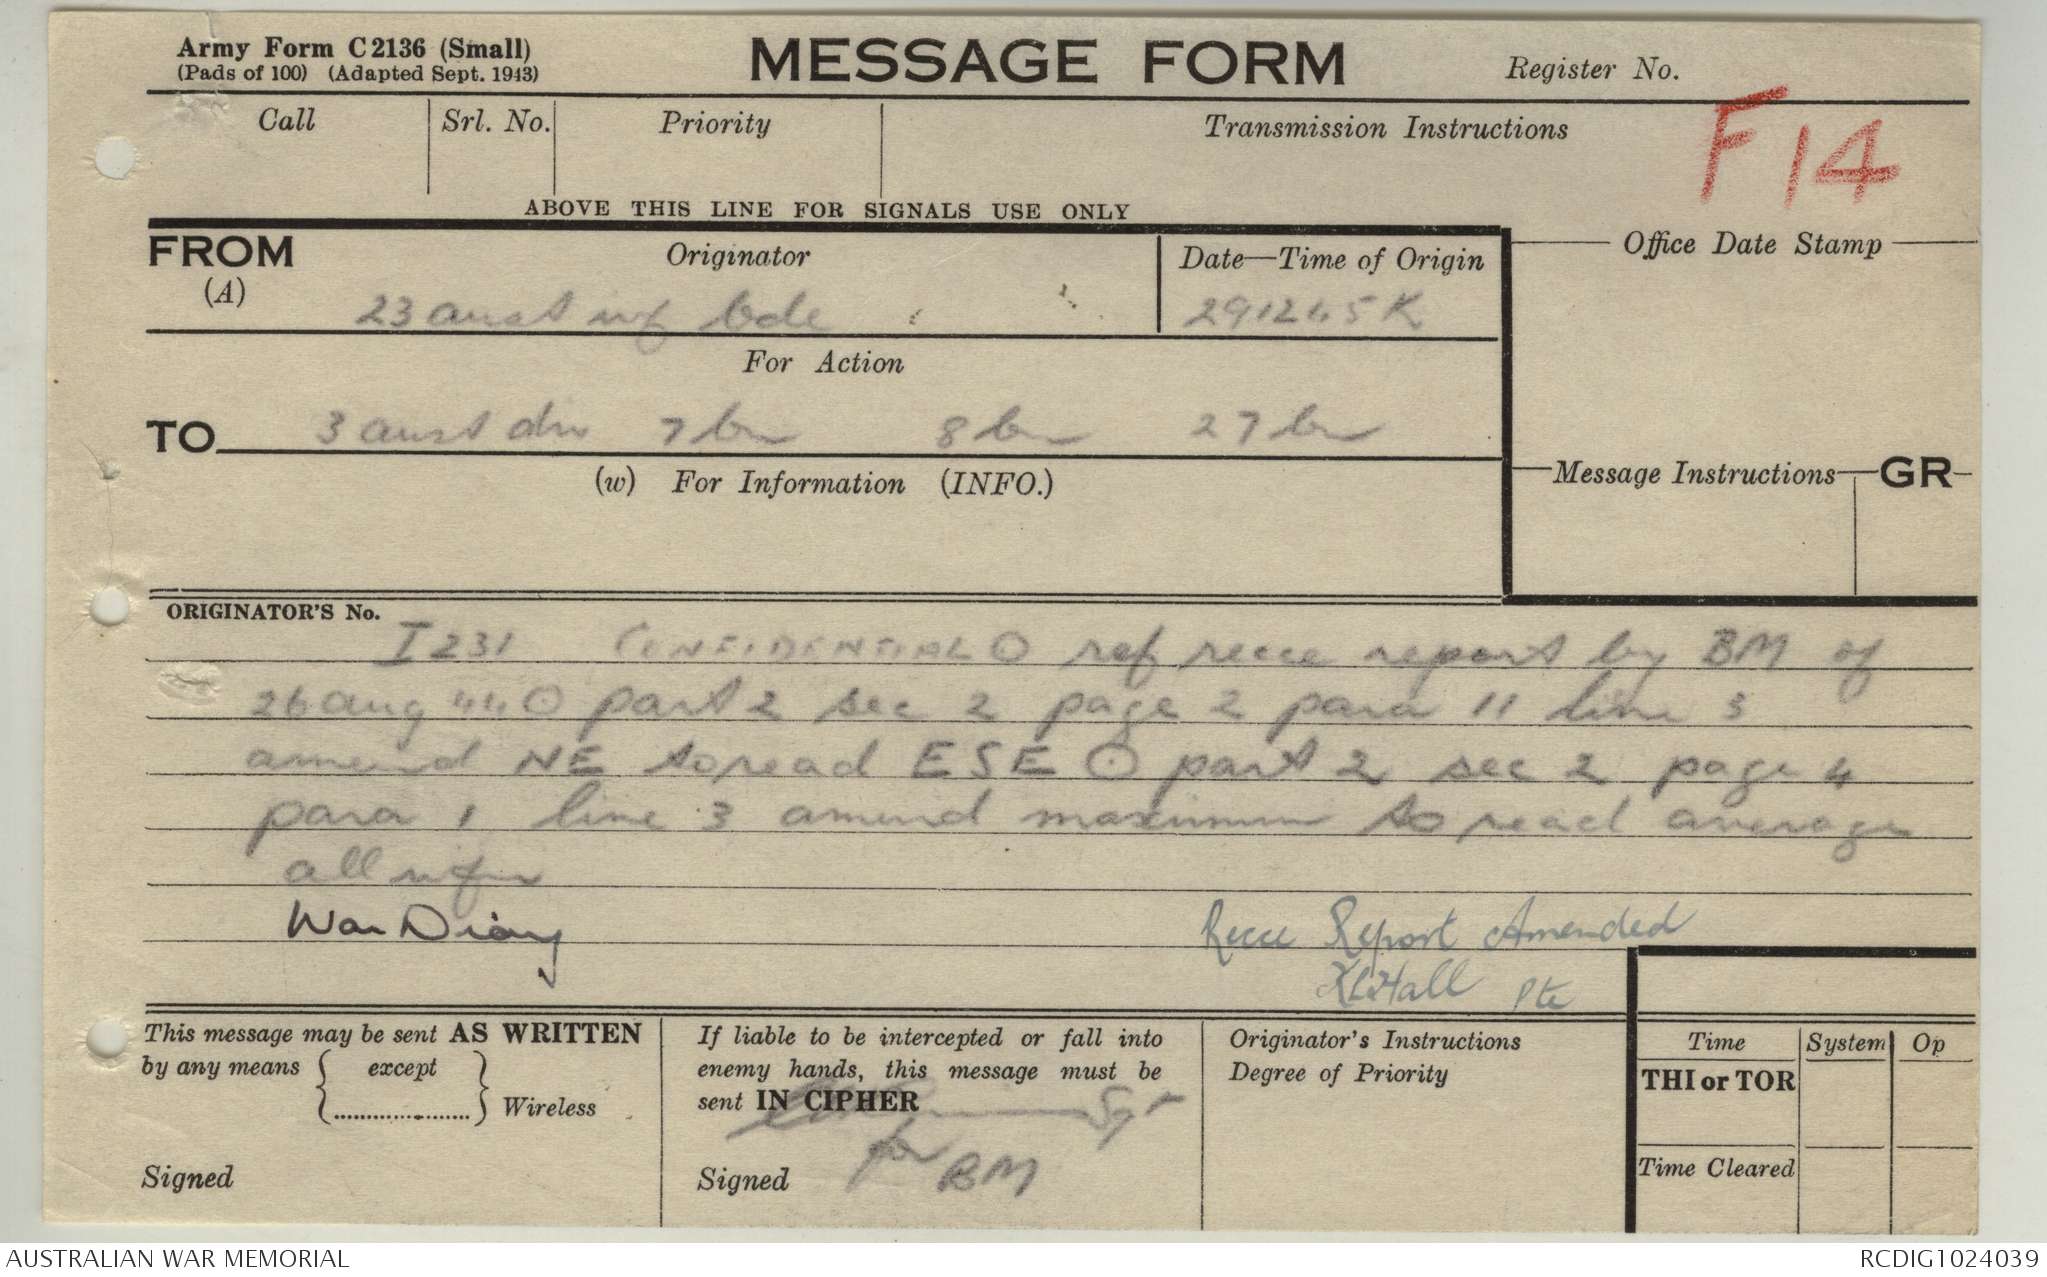 Army Form C2136 (Small)
(Pads of 100) (Adapted Sept. 1943)
MESSAGE FORM
Register No.
Call
Srl. No.
Priority
Transmission Instructions
F14
ABOVE THIS LINE FOR SIGNALS USE ONLY
FROM
(A)
Originator
Date—Time of Origin
Office Date Stamp
23 aust inf bde
291245K
For Action
TO
3 aust div 7 bn 8 bn 27 bn
(w) For Information (INFO.)
Message Instructions
GR
ORIGINATOR'S No.
I 231 CONFIDENTIAL ⊙ ref recce report by BM of
26 aug 44 ⊙ part 2 sec 2 page 2 para 11 line 3
amend NE to read ESE ⊙ part 2 sec 2 page 4
para 1 line 3 amend maximum to read average
all infm
War Diary
Recce Report Amended
Hall Pte
This message may be sent AS WRITTEN
by any means { except
} Wireless
Signed
If liable to be intercepted or fall into
enemy hands, this message must be
sent IN CIPHER
Sgt
for BM
Signed
Originator's Instructions
Degree of Priority
Time
System
Op
THI or TOR
Time Cleared
AUSTRALIAN WAR MEMORIAL
RCDIG1024039